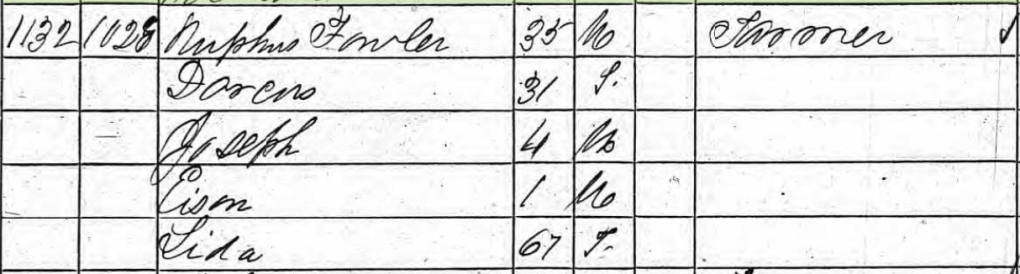 1132 1028 Ruphus Fowler 35 M Farmer
Dorcus 31 F.
Joseph 4 M
Eison 1 M
Lida 67 F.